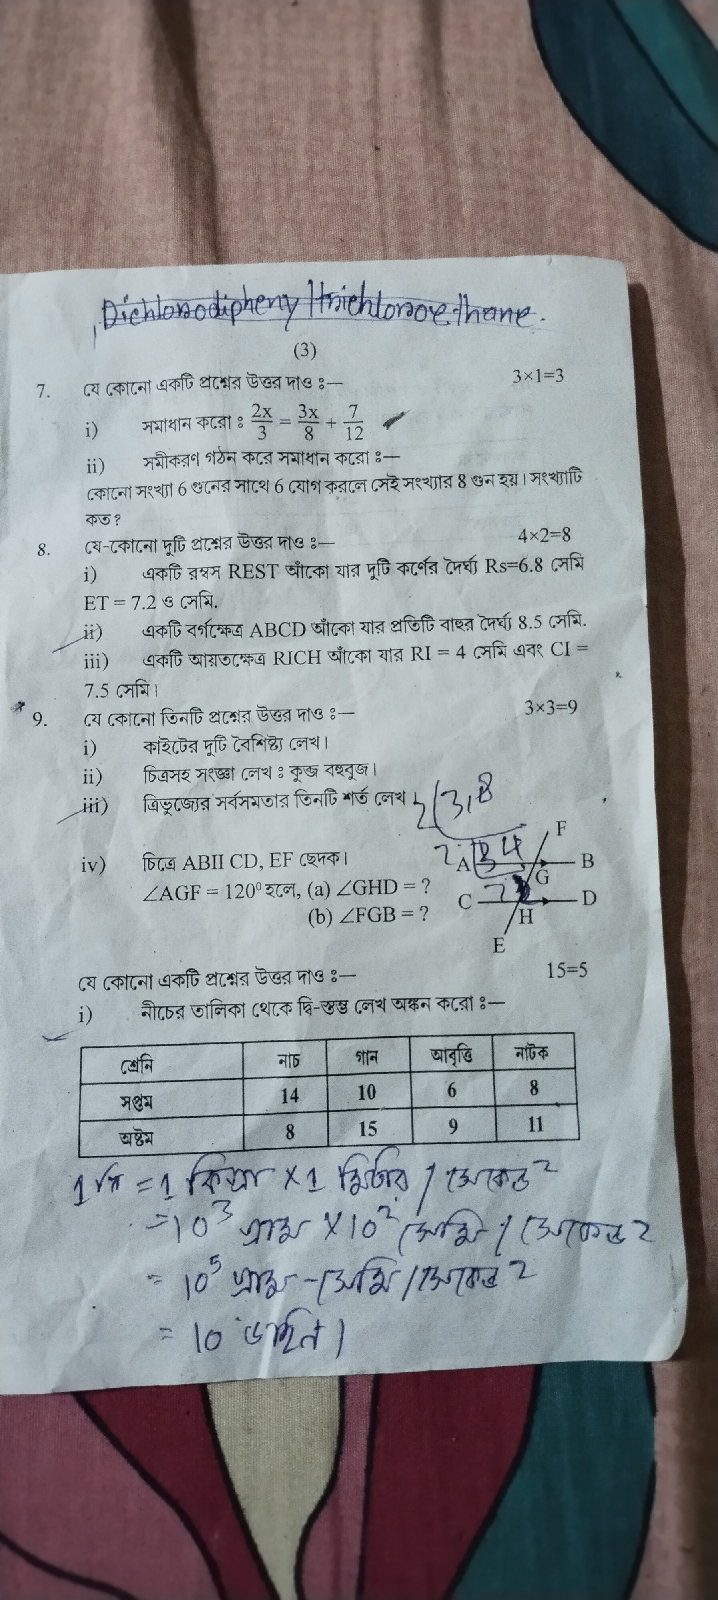 Dichlorodipheny ltrichloroe thane.
(3)
7. যে কোনো একটি প্রশ্নের উত্তর দাও ঃ— 3×1=3
i) সমাধান করো ঃ 2x/3 = 3x/8 + 7/12
ii) সমীকরণ গঠন করে সমাধান করো ঃ—
কোনো সংখ্যা 6 গুনের সাথে 6 যোগ করলে সেই সংখ্যার 8 গুন হয়। সংখ্যাটি
কত ?
8. যে-কোনো দুটি প্রশ্নের উত্তর দাও ঃ— 4×2=8
i) একটি রম্বস REST আঁকো যার দুটি কর্ণের দৈর্ঘ্য Rs=6.8 সেমি
ET = 7.2 ও সেমি.
ii) একটি বর্গক্ষেত্র ABCD আঁকো যার প্রতিটি বাহুর দৈর্ঘ্য 8.5 সেমি.
iii) একটি আয়তক্ষেত্র RICH আঁকো যার RI = 4 সেমি এবং CI =
7.5 সেমি।
9. যে কোনো তিনটি প্রশ্নের উত্তর দাও ঃ— 3×3=9
i) কাইটের দুটি বৈশিষ্ট্য লেখ।
ii) চিত্রসহ সংজ্ঞা লেখ ঃ কুব্জ বহুভুজ।
iii) ত্রিভুজ্যের সর্বসমতার তিনটি শর্ত লেখ
2 3,8
2 3 4
F
iv) চিত্রে ABII CD, EF ছেদক। A G B
∠AGF = 120⁰ হলে, (a) ∠GHD = ? C H D
(b) ∠FGB = ?
E
যে কোনো একটি প্রশ্নের উত্তর দাও ঃ— 15=5
i) নীচের তালিকা থেকে দ্বি-স্তম্ভ লেখ অঙ্কন করো ঃ—
শ্রেনি নাচ গান আবৃত্তি নাটক
সপ্তম 14 10 6 8
অষ্টম 8 15 9 11
1 নি = 1 কিগ্রা × 1 মিটার / সেকেন্ড 2
= 10³ গ্রাম × 10² সেমি / সেকেন্ড 2
= 10⁵ গ্রাম - সেমি / সেকেন্ড 2
= 10 ডাইন।